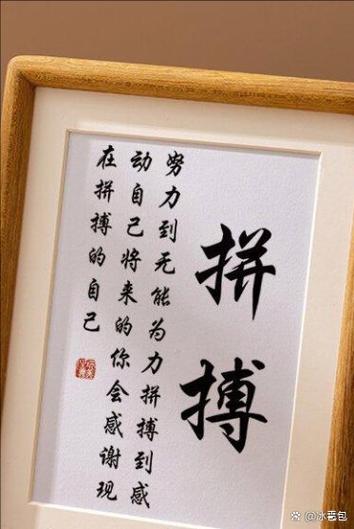 拼搏
努力到无能为力拼搏到感
动自己将来的你会感谢现
在拼搏的自己
@冰莣包